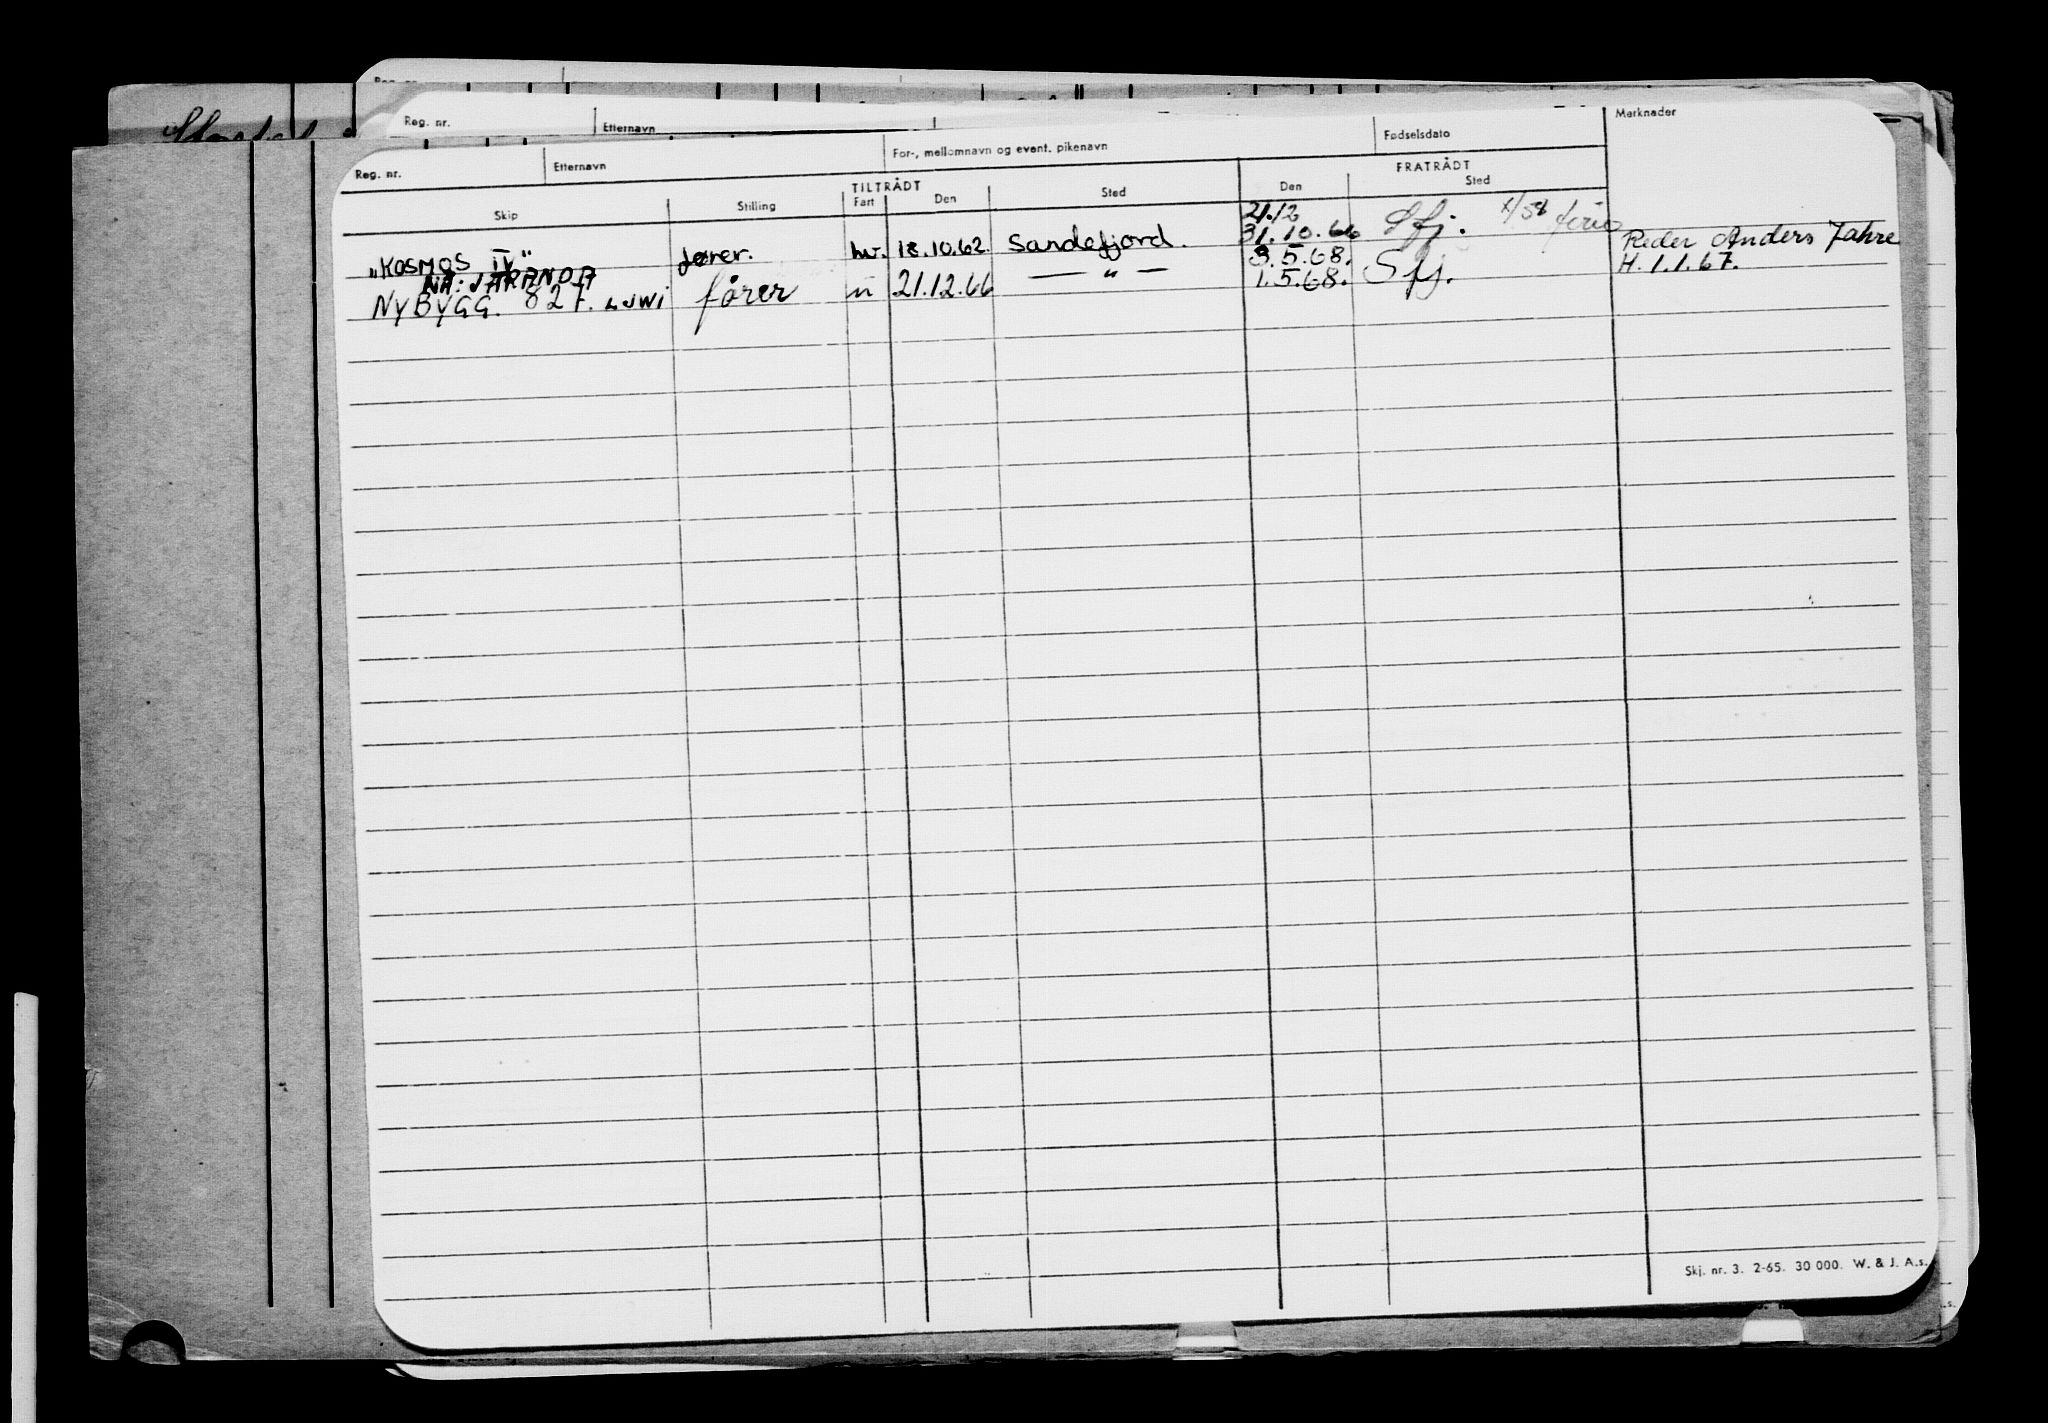 Reg. nr.
Reg. nr. Etternavn
Reg. nr. Etternavn For-, mellomnavn og event. pikenavn Fødselsdato Merknader
TILTRÅDT FRATRÅDT
Skip Stilling Fart Den Sted Den Sted
21.12
„KOSMOS IV" fører. hv. 18.10.62. Sandefjord. 31.10.66 Sfj. Reder Anders Jahre
NÅ: JARANDA 3.5.68. H. 1.1.67.
NYBYGG. 827. fører n 21.12.66 — " — 1.5.68. Sfj.
Skj. nr. 3. 2-65. 30 000. W. & J. A.s.